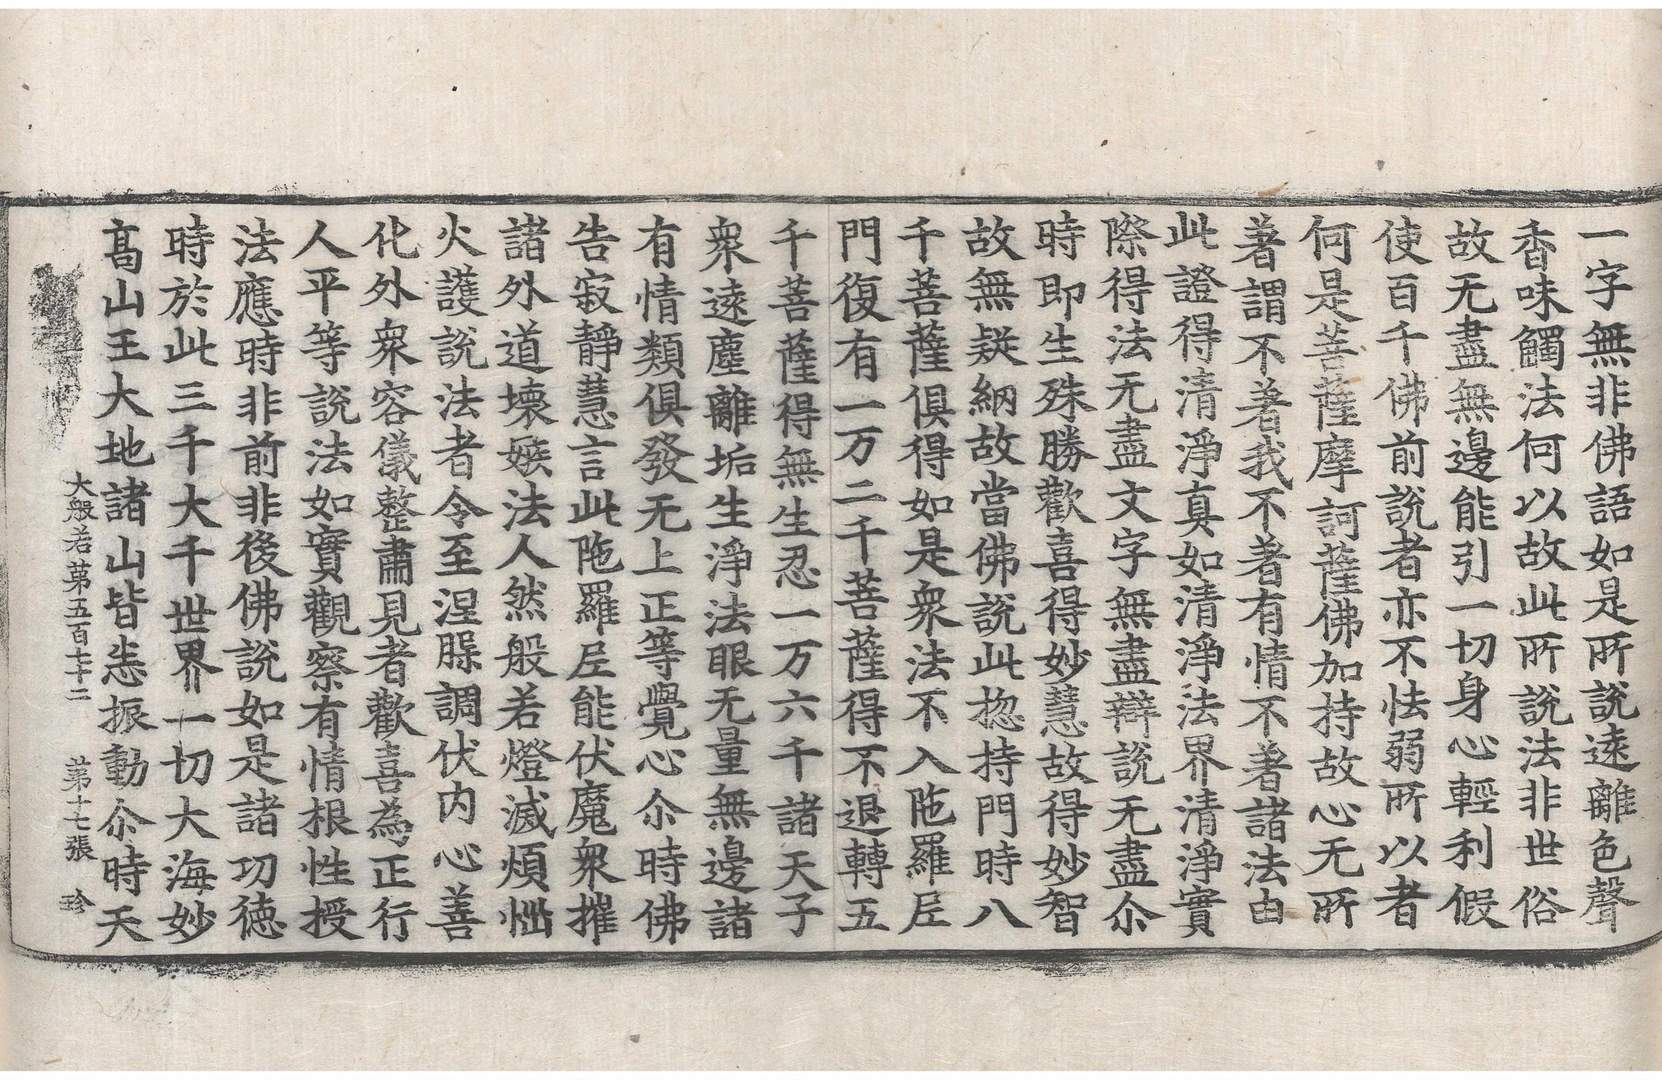 一字無非佛語如是所說遠離色聲
香味觸法何以故此所說法非世俗
故无盡無邊能引一切身心輕利假
使百千佛前說者亦不怯弱所以者
何是菩薩摩訶薩佛加持故心无所
著謂不著我不著有情不著諸法由
此證得清淨真如清淨法界清淨實
際得法无盡文字無盡辯說无盡尒
時即生殊勝歡喜得妙慧故得妙智
故無疑網故當佛說此揔持門時八
千菩薩俱得如是衆法不入陁羅尼
門復有一万二千菩薩得不退轉五
千菩薩得無生忍一万六千諸天子
衆遠塵離垢生淨法眼无量無邊諸
有情類俱發无上正等覺心尒時佛
告寂靜慧言此陁羅尼能伏魔衆摧
諸外道壞嫉法人然般若燈滅煩惱
火護說法者令至涅脲調伏内心善
化外衆容儀整肅見者歡喜為正行
人平等說法如實觀察有情根性授
法應時非前非後佛說如是諸功德
時於此三千大千世界一切大海妙
髙山王大地諸山皆悉振動尒時天
大般若第五百七十二 第十七張 珍